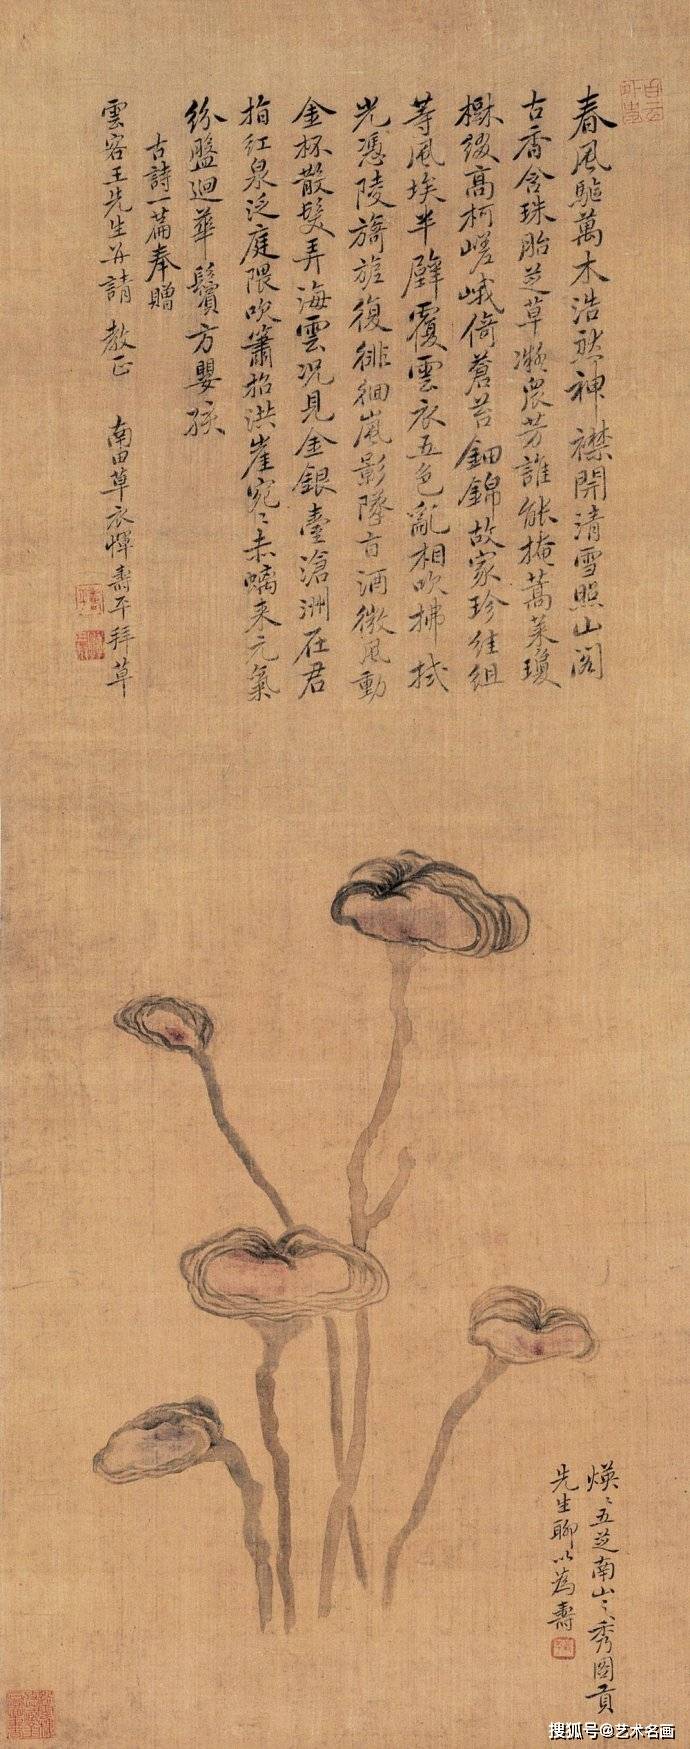 春風驅萬木浩然神襟開清雪照山閣
古香含珠胎芝草凝眾芳誰能掩蒿萊瓊
樹綴高柯嵯峨倚蒼苔鈿錦故家珍佳組
等風埃半壁覆雲衣五色亂相吹拂拭
光憑陵旖旎復徘徊嵐影墜百酒微風動
金杯散髮弄海雲況見金銀臺滄洲在君
指紅泉泛庭隈吹簫招洪崖宛〻赤螭來元氣
紛盤迴華鬢方嬰孩
古詩一篇奉贈
雲客王先生并請 教正 南田草衣惲壽平拜草
煐〻五芝南山〻秀圖貢
先生聊以為壽
搜狐号@艺术名画